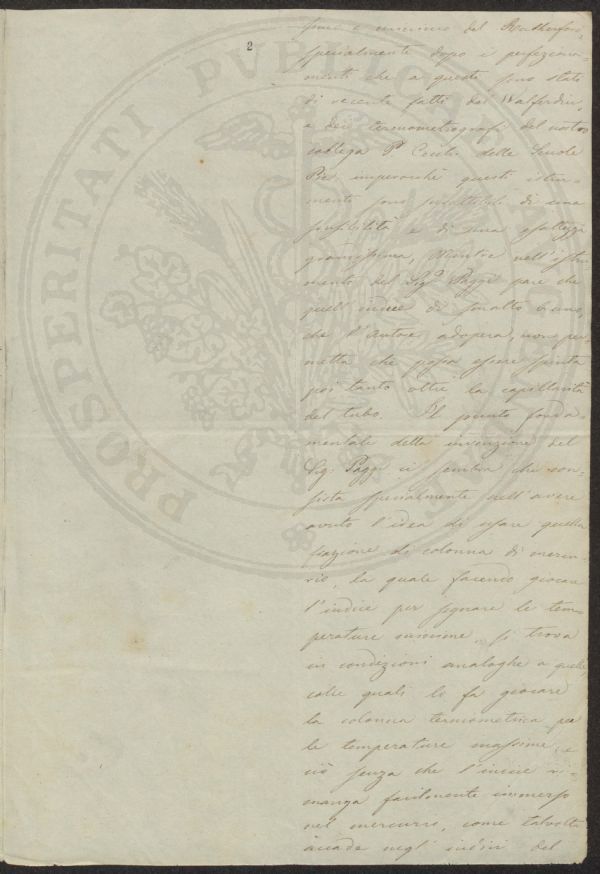 2
e minimo del Rutherford,
specialmente dopo i perfeziona-
menti che a questo sono stati
di recente fatti dal Walferdin,
e dei termometrografi del nostro
collega P. delle Scuole
Pie: imperocchè questi istru-
menti sono suscettibili di una
sensibilità e di una esattezza
grandissima, mentre nell'istru-
mento del Sig.r Paggi pare che
quell'indice di smalto
che l'autore adopera, non per-
metta che possa essere spinta
poi tanto oltre la capillarità
del tubo. Il punto fonda-
mentale della invenzione del
Sig. Paggi ci sembra che con-
sista specialmente nell'avere
avuto l'idea di usare quella
frazione di colonna di mercu-
rio, la quale facendo giocare
l'indice per segnare le tem-
perature minime, si trova
in condizioni analoghe a quelle,
colle quali li fa giocare
la colonna termometrica per
le temperature massime, e
ciò senza che l'indice ri-
manga facilmente immerso
nel mercurio, come talvolta
accade negl'indici del
PROSPERITATI PUBLICAE